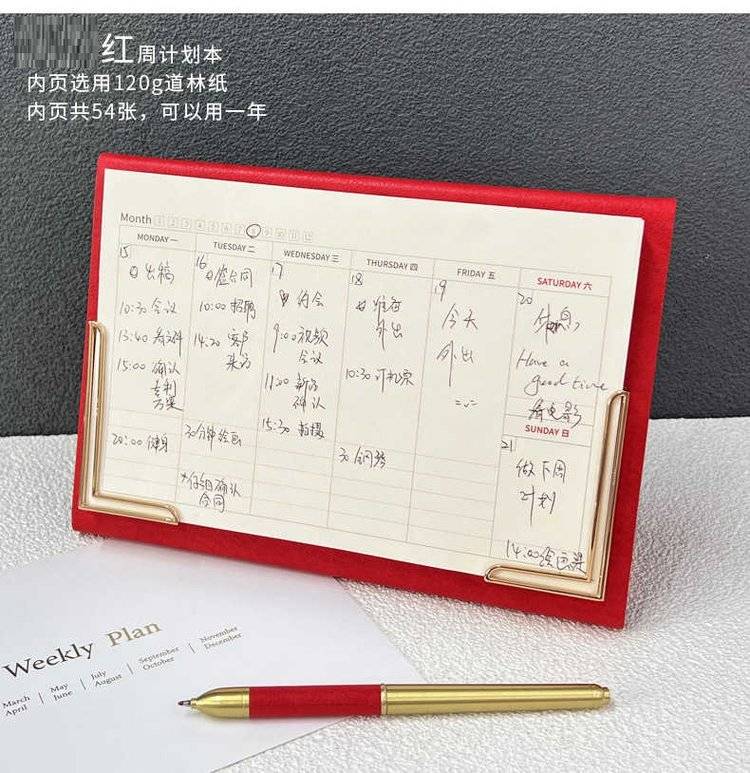 红周计划本
内页选用120g道林纸
内页共54张，可以用一年
Month 1 2 3 4 5 6 7 8 9 10 11 12
MONDAY 一
15
出稿
10:30 会议
13:40 看文件
15:00 确认
专利
方案
20:00 健身
TUESDAY 二
16
签合同
10:00 招聘
14:20 客户
来访
30分钟绘画
确认
合同
WEDNESDAY 三
17
约会
9:00 视频
会议
11:00 新品
确认
15:30 拍摄
THURSDAY 四
18
准备
外出
10:30 订机票
30 钢琴
FRIDAY 五
19
今天
外出
SATURDAY 六
20
休息
Have a
good time
看电影
SUNDAY 日
21
做下周
计划
14:00 绘画课
Weekly Plan
March
April
May
June
July
August
September
October
November
December